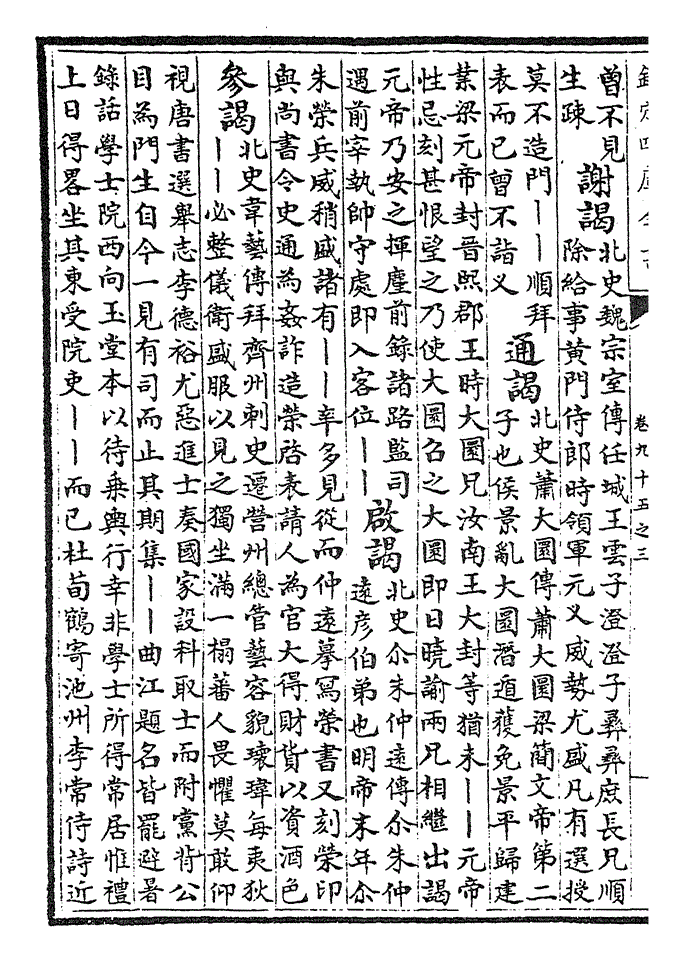 欽定四庫全書
卷九十五之三
曾不見
生疎
謝謁
北史魏宗室傳任城王雲子澄澄子彞彞庶長兄順
除給事黃門侍郎時領軍元乂威勢尤盛凡有選授
莫不造門丨丨順拜
表而已曾不詣义
通謁
北史蕭大圜傳蕭大圜梁簡文帝第二
子也侯景亂大圜潛遁獲免景平歸建
業梁元帝封晉熙郡王時大圜兄汝南王大封等猶未丨丨元帝
性忌刻甚恨望之乃使大圜召之大圜即日曉諭兩兄相繼出謁
元帝乃安之揮麈前錄諸路監司
遇前宰執帥守處即入客位丨丨
啟謁
北史尒朱仲遠傳尒朱仲
遠彥伯弟也明帝末年尒
朱榮兵威稍盛諸有丨丨率多見從而仲遠摹寫榮書又刻榮印
與尚書令史通為姦詐造榮啓表請人為官大得財貨以資酒色
參謁
北史韋藝傳拜齊州刺史遷營州總管藝容貌瓌瑋每夷狄
丨丨必整儀衛盛服以見之獨坐滿一榻蕃人畏懼莫敢仰
視唐書選舉志李德裕尤惡進士奏國家設科取士而附黨背公
目為門生自今一見有司而止其期集丨丨曲江題名皆罷避暑
錄話學士院西向玉堂本以待乗輿行幸非學士所得常居惟禮
上日得畧坐其東受院吏丨丨而已杜荀鶴寄池州李常侍詩近